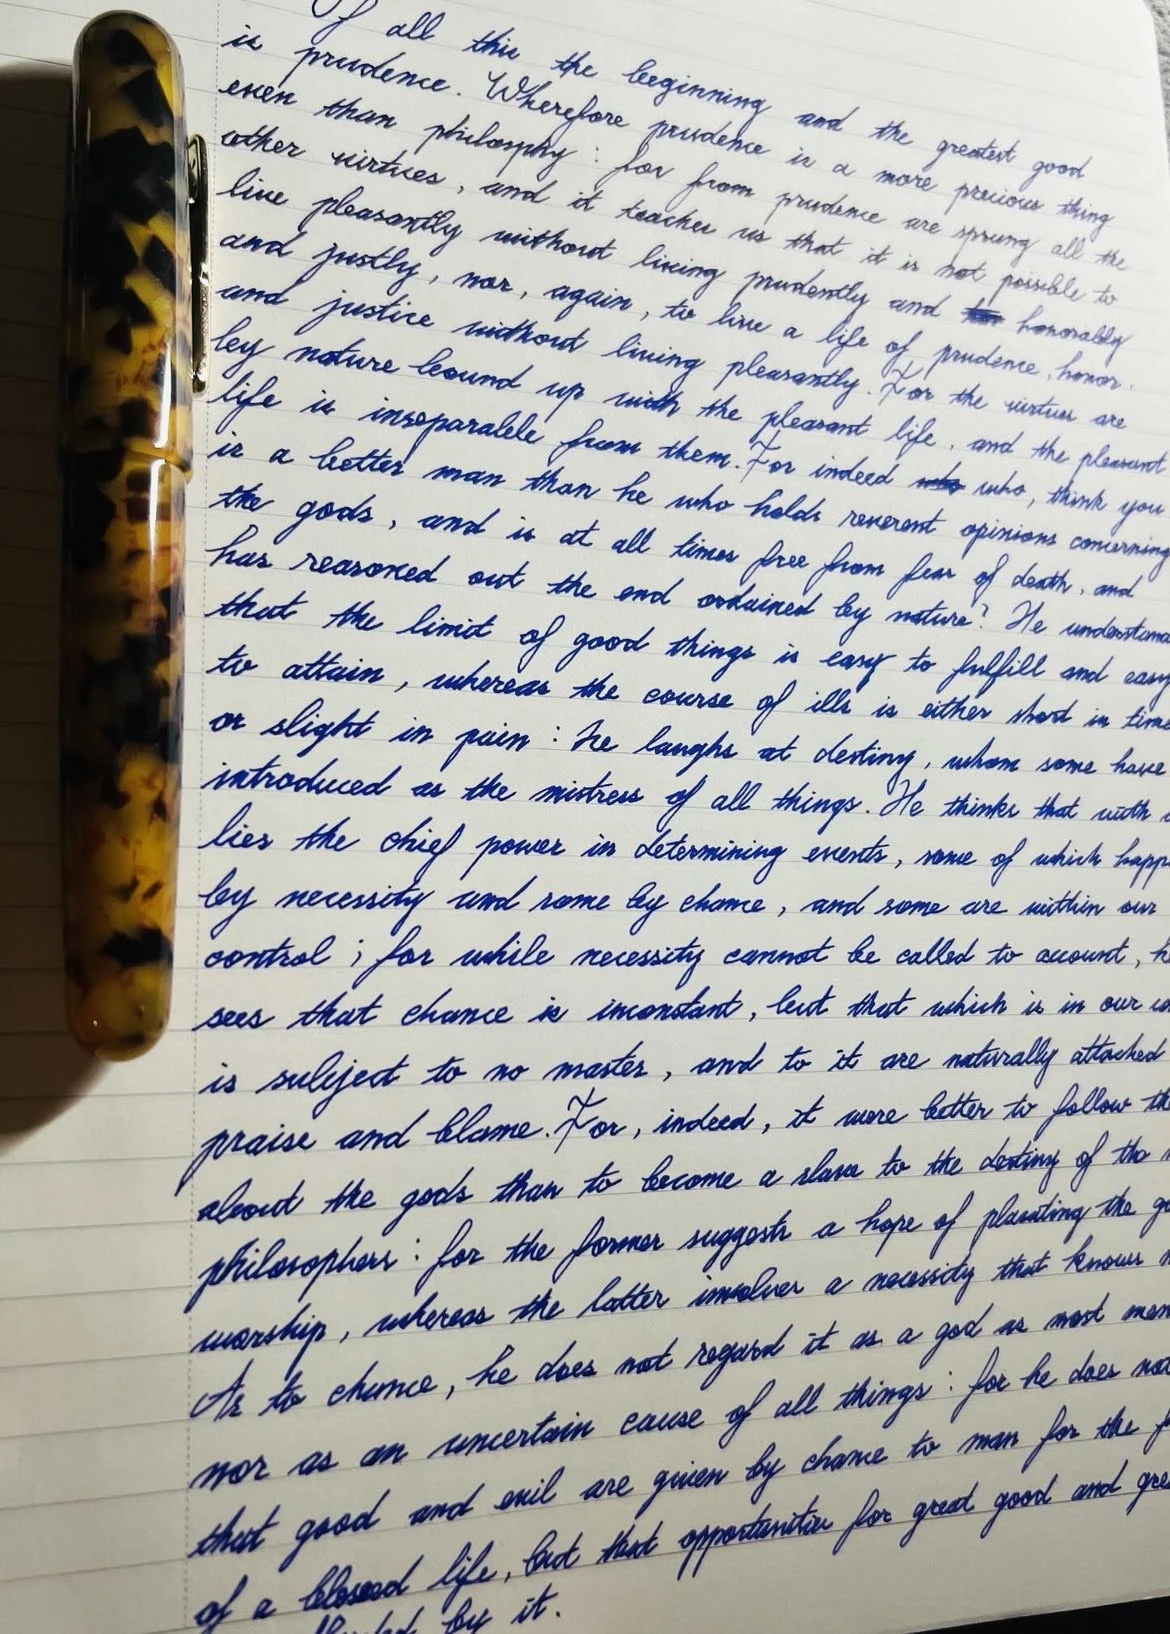 Of all this the beginning and the greatest good
is prudence. Wherefore prudence is a more precious thing
even than philosophy: for from prudence are sprung all the
other virtues, and it teaches us that it is not possible to
live pleasantly without living prudently and honorably
and justly, nor, again, to live a life of prudence, honor,
and justice without living pleasantly. For the virtues are
by nature bound up with the pleasant life, and the pleasant
life is inseparable from them. For indeed who, think you
is a better man than he who holds reverent opinions concerning
the gods, and is at all times free from fear of death, and
has reasoned out the end ordained by nature? He
that the limit of good things is easy to fulfill and easy
to attain, whereas the course of ills is either short in time
or slight in pain: he laughs at destiny, whom some have
introduced as the mistress of all things. He thinks that with
lies the chief power in determining events, some of which
by necessity and some by chance, and some are within our
control; for while necessity cannot be called to account,
sees that chance is inconstant, but that which is in our
is subject to no master, and to it are naturally attached
praise and blame. For, indeed, it were better to follow
about the gods than to become a slave to the destiny of the
philosophers: for the former suggests a hope of placating the
worship, whereas the latter involves a necessity that knows
As to chance, he does not regard it as a god as most men
nor as an uncertain cause of all things: for he does not
that good and evil are given by chance to man for the
of a blessed life, but that opportunities for great good and
by it.